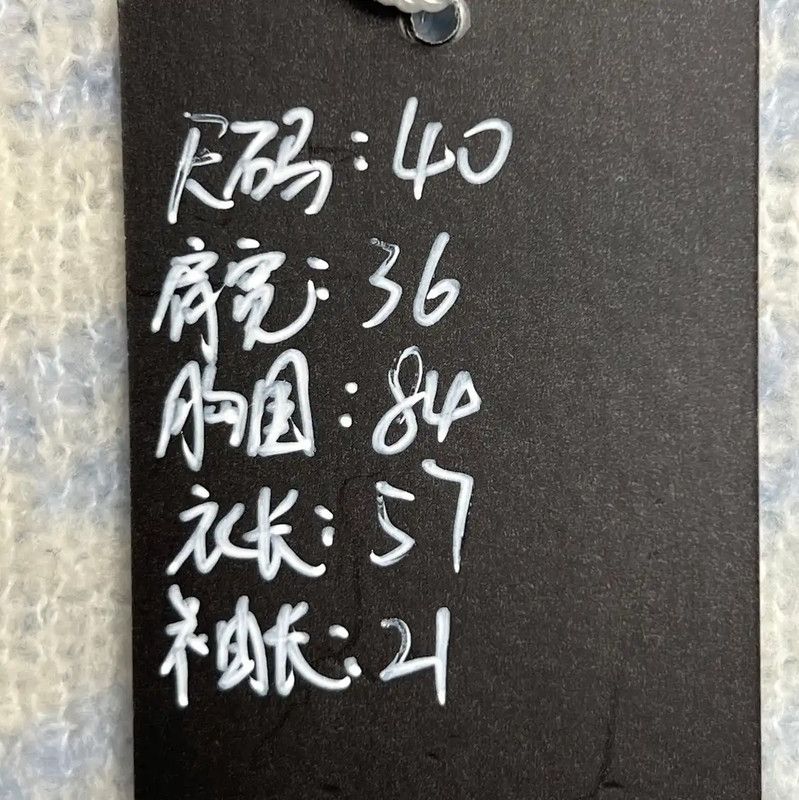 尺码:40
肩宽:36
胸围:84
衣长:57
袖长:21